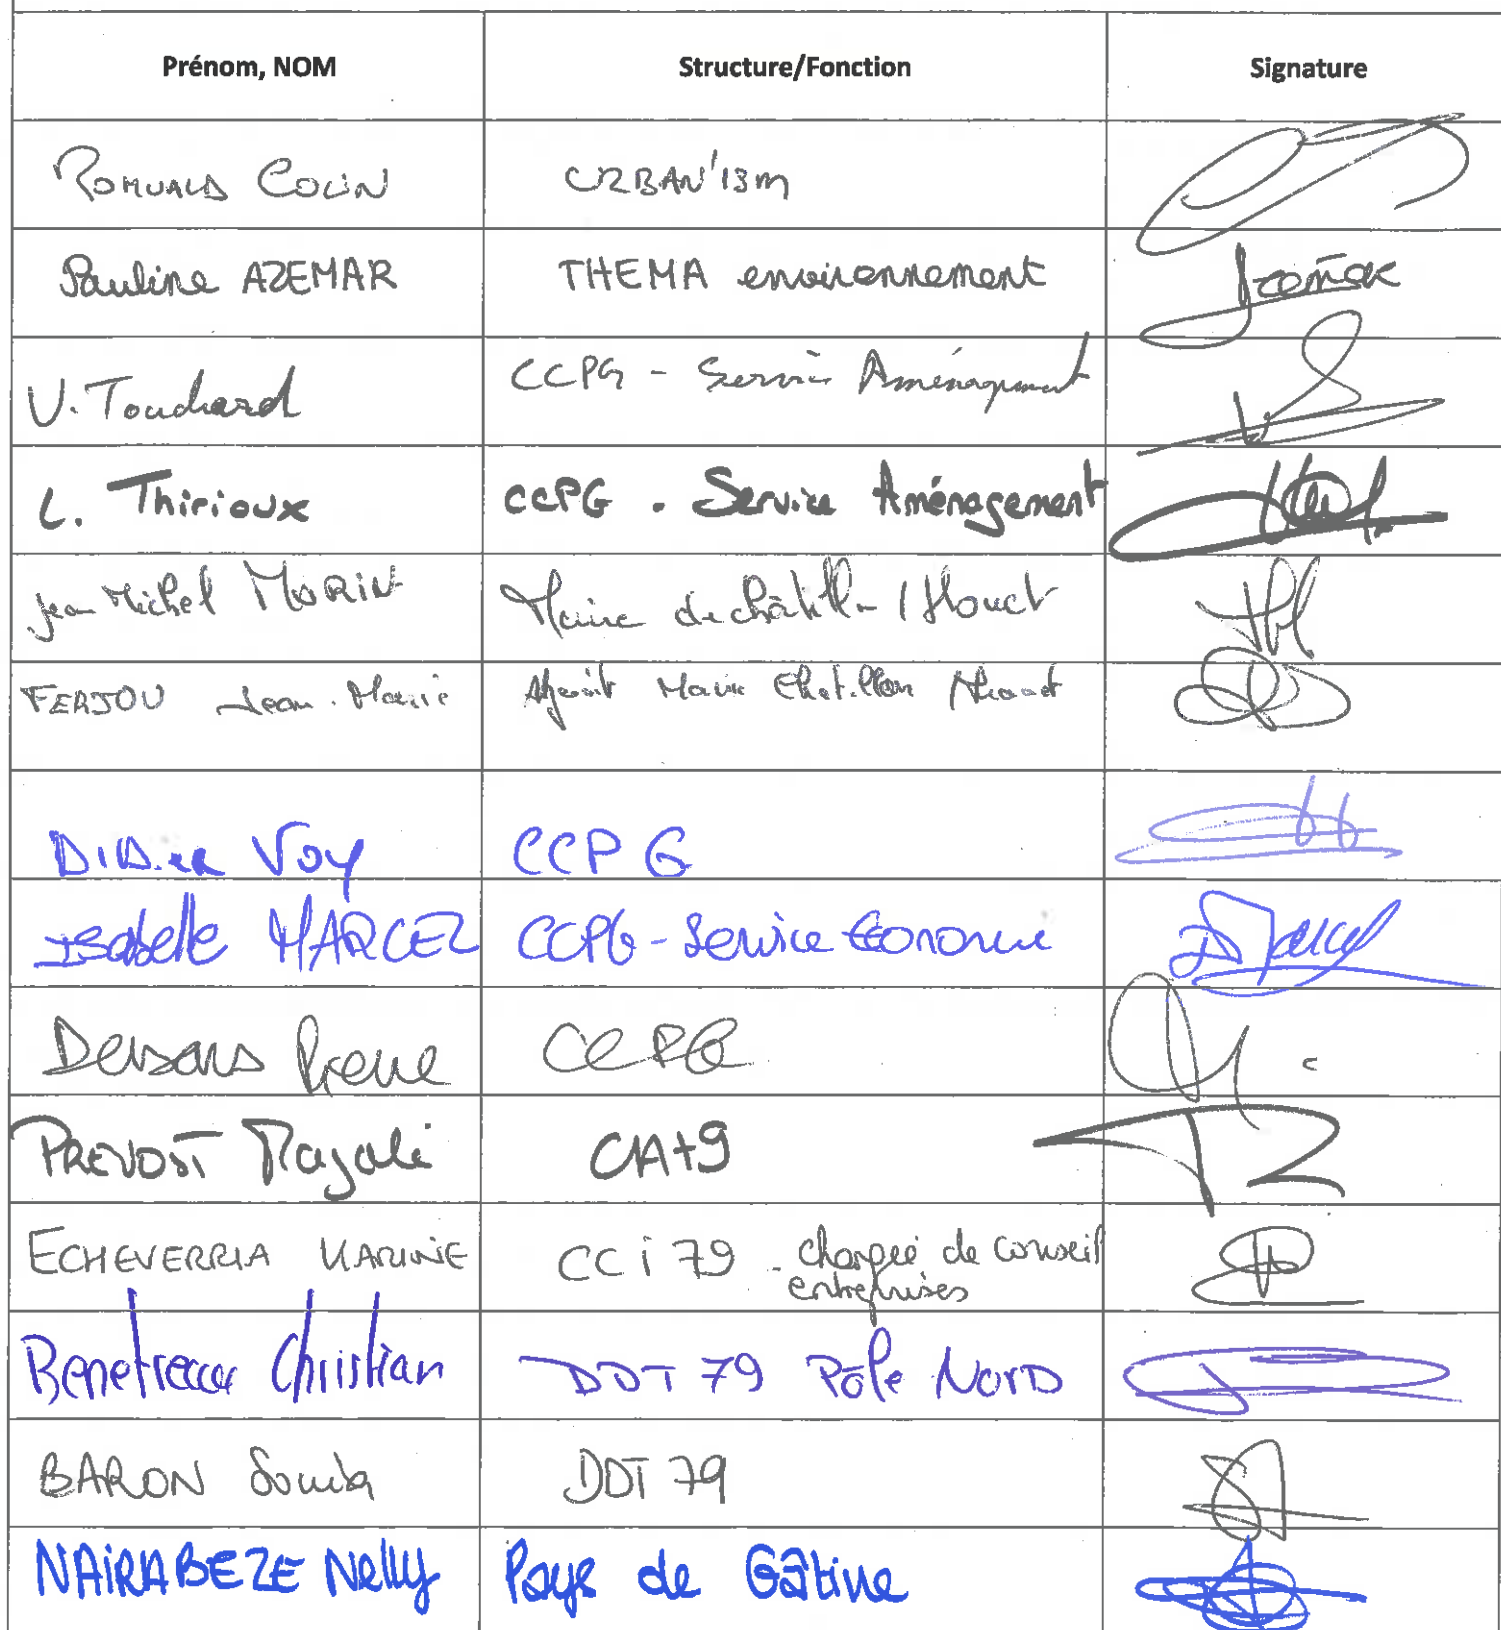 Prénom, NOM Structure/Fonction Signature
ROMUALD COLIN URBAN'ISM
Pauline AZEMAR THEMA environnement
V. Touchard CCPG - Service Aménagement
L. Thirioux CCPG - Service Aménagement
Jean Michel MORIN Maire de Châtillon / Thouet
FERJOU Jean-Marie Adjoint Maire Chatillon Thouet
DIDIER VOY CCPG
Isabelle MARCEL CCPG - Service Economie
Pierre CCPG
PREVOST Magali CIA79
ECHEVERRIA KARINE CCi 79 - chargée de conseil
entreprises
Christian DDT 79 Pôle NORD
BARON Sonia DDT 79
NAIRABEZE Nelly Pays de Gâtine